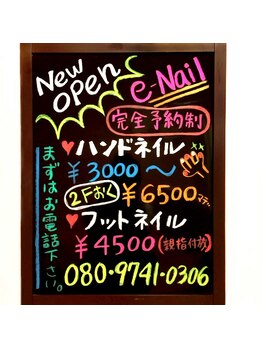 New
open
e-Nail
完全予約制
♥ハンドネイル
¥3000〜
2Fおく ¥6500マデ。
♥フットネイル
¥4500(親指付放)
080・9741・0306
まずはお電話下さい。